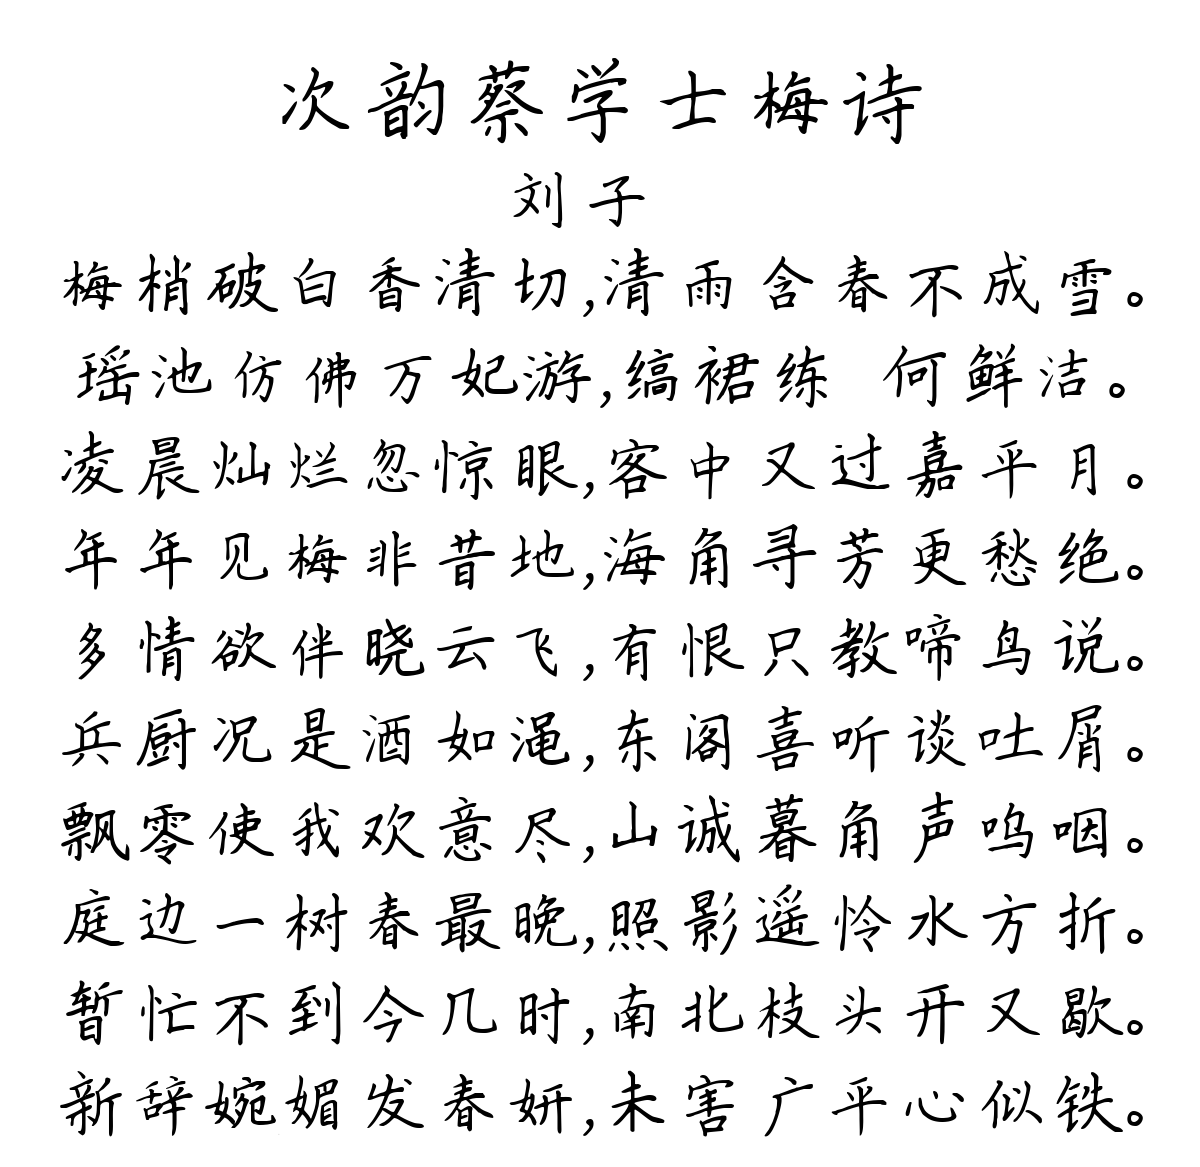 次韵蔡学士梅诗
刘子
梅梢破白香清切,清雨含春不成雪。
瑶池仿佛万妃游,缟裙练 何鲜洁。
凌晨灿烂忽惊眼,客中又过嘉平月。
年年见梅非昔地,海角寻芳更愁绝。
多情欲伴晓云飞,有恨只教啼鸟说。
兵厨况是酒如渑,东阁喜听谈吐屑。
飘零使我欢意尽,山诚暮角声呜咽。
庭边一树春最晚,照影遥怜水方折。
暂忙不到今几时,南北枝头开又歇。
新辞婉媚发春妍,未害广平心似铁。